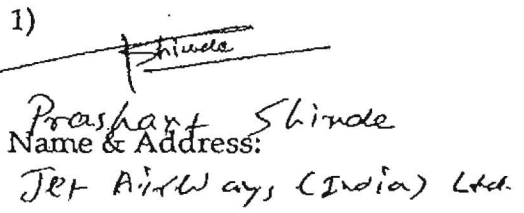 1)
Shinde
Prashant Shinde
Name & Address:
Jet Airways (India) Ltd.